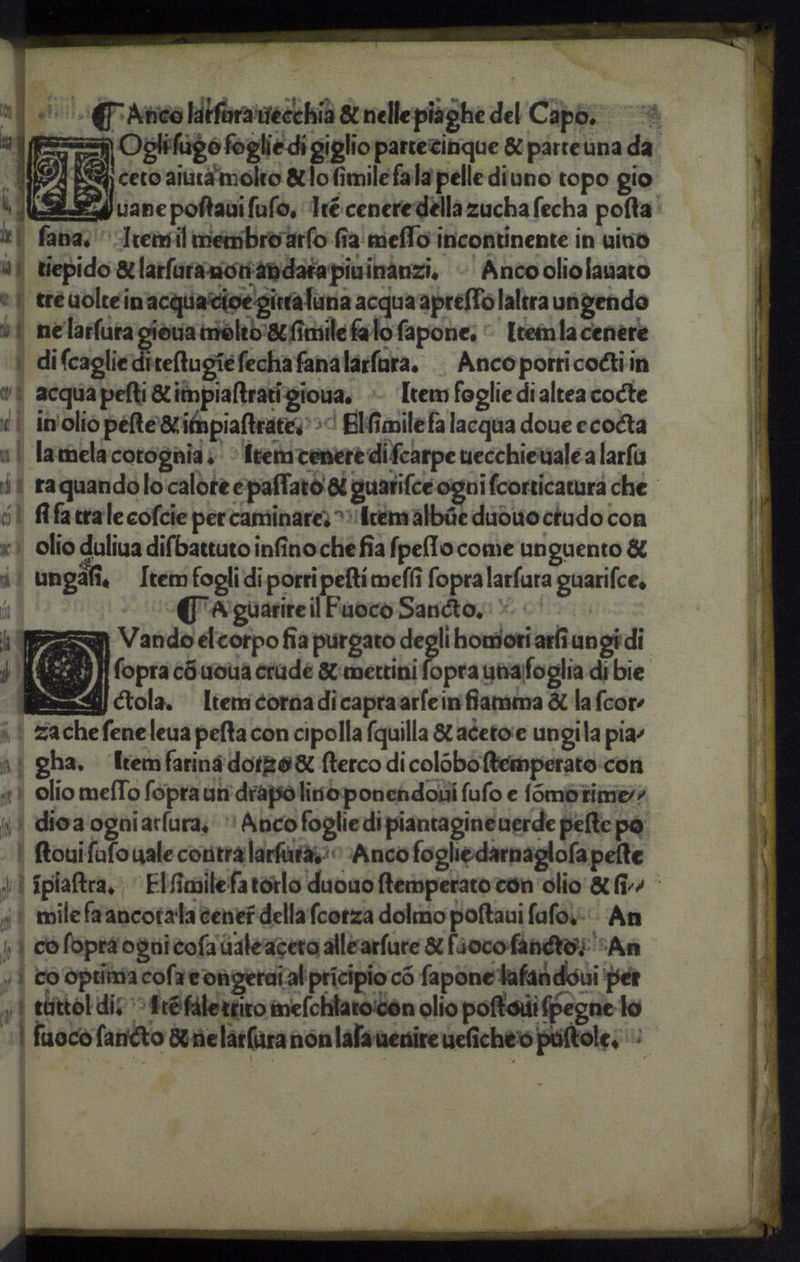 ¶ Anco larſura uecchia & nelle piaghe del Capo.
Ogli ſugo foglie di giglio parte cinque & parte una da
ceto aiuta molto & lo ſimile fa la pelle di uno topo gio
uane poſtaui ſuſo. Ité cenere della zucha ſecha poſta
ſana. Item il membro arſo ſia meſſo incontinente in uino
tiepido & larſura non andara piu inanzi. Anco olio lauato
tre uolte in acqua cioe gitta luna acqua apreſſo laltra ungendo
ne larſura gioua molto & ſimile fa lo ſapone. Item la cenere
di ſcaglie di teſtugie ſecha ſana larſura. Anco porri cocti in
acqua peſti & impiaſtrati gioua. Item foglie di altea cocte
in olio peſte & impiaſtrate. El ſimile fa lacqua doue e cocta
la mela cotognia. Item cenere di ſcarpe uecchie uale a larſu
ra quando lo calore e paſſato & guariſce ogni ſcorticatura che
ſi fa tra le coſcie per caminare. Item albúe duouo crudo con
olio duliua diſbattuto inſino che ſia ſpeſſo come unguento &
ungáſi. Item fogli di porri peſti meſſi ſopra larſura guariſce.
¶ A guarire il Fuoco Sancto.
Vando el corpo ſia purgato degli homori arſi ungi di
ſopra có uoua crude & mettini ſopra una foglia di bie
ctola. Item corna di capra arſe in fiamma & la ſcor⸗
za che ſene leua peſta con cipolla ſquilla & aceto e ungi la pia⸗
gha. Item farina dorzo & ſterco di colóbo ſtemperato con
olio meſſo ſopra un drapo lino ponendoui ſuſo e ſómo rime⸗⸗
dio a ogni arſura. Anco foglie di piantagine uerde peſte po
ſtoui ſuſo uale contra larſura. Anco foglie darnagloſa peſte
ípiaſtra. El ſimile fa torlo duouo ſtemperato con olio & ſi⸗⸗
mile fa ancora la cener della ſcorza dolmo poſtaui ſuſo. An
co ſopra ogni coſa uale aceto alle arſure & fuoco ſancto. An
co optima coſa e ongerai al pricipio có ſapone laſandoui per
tuttol di. Ité ſalettiro meſchlato con olio poſtoui ſpegne lo
fuoco ſancto & ne larſura non laſa uenire ueſiche o puſtole.